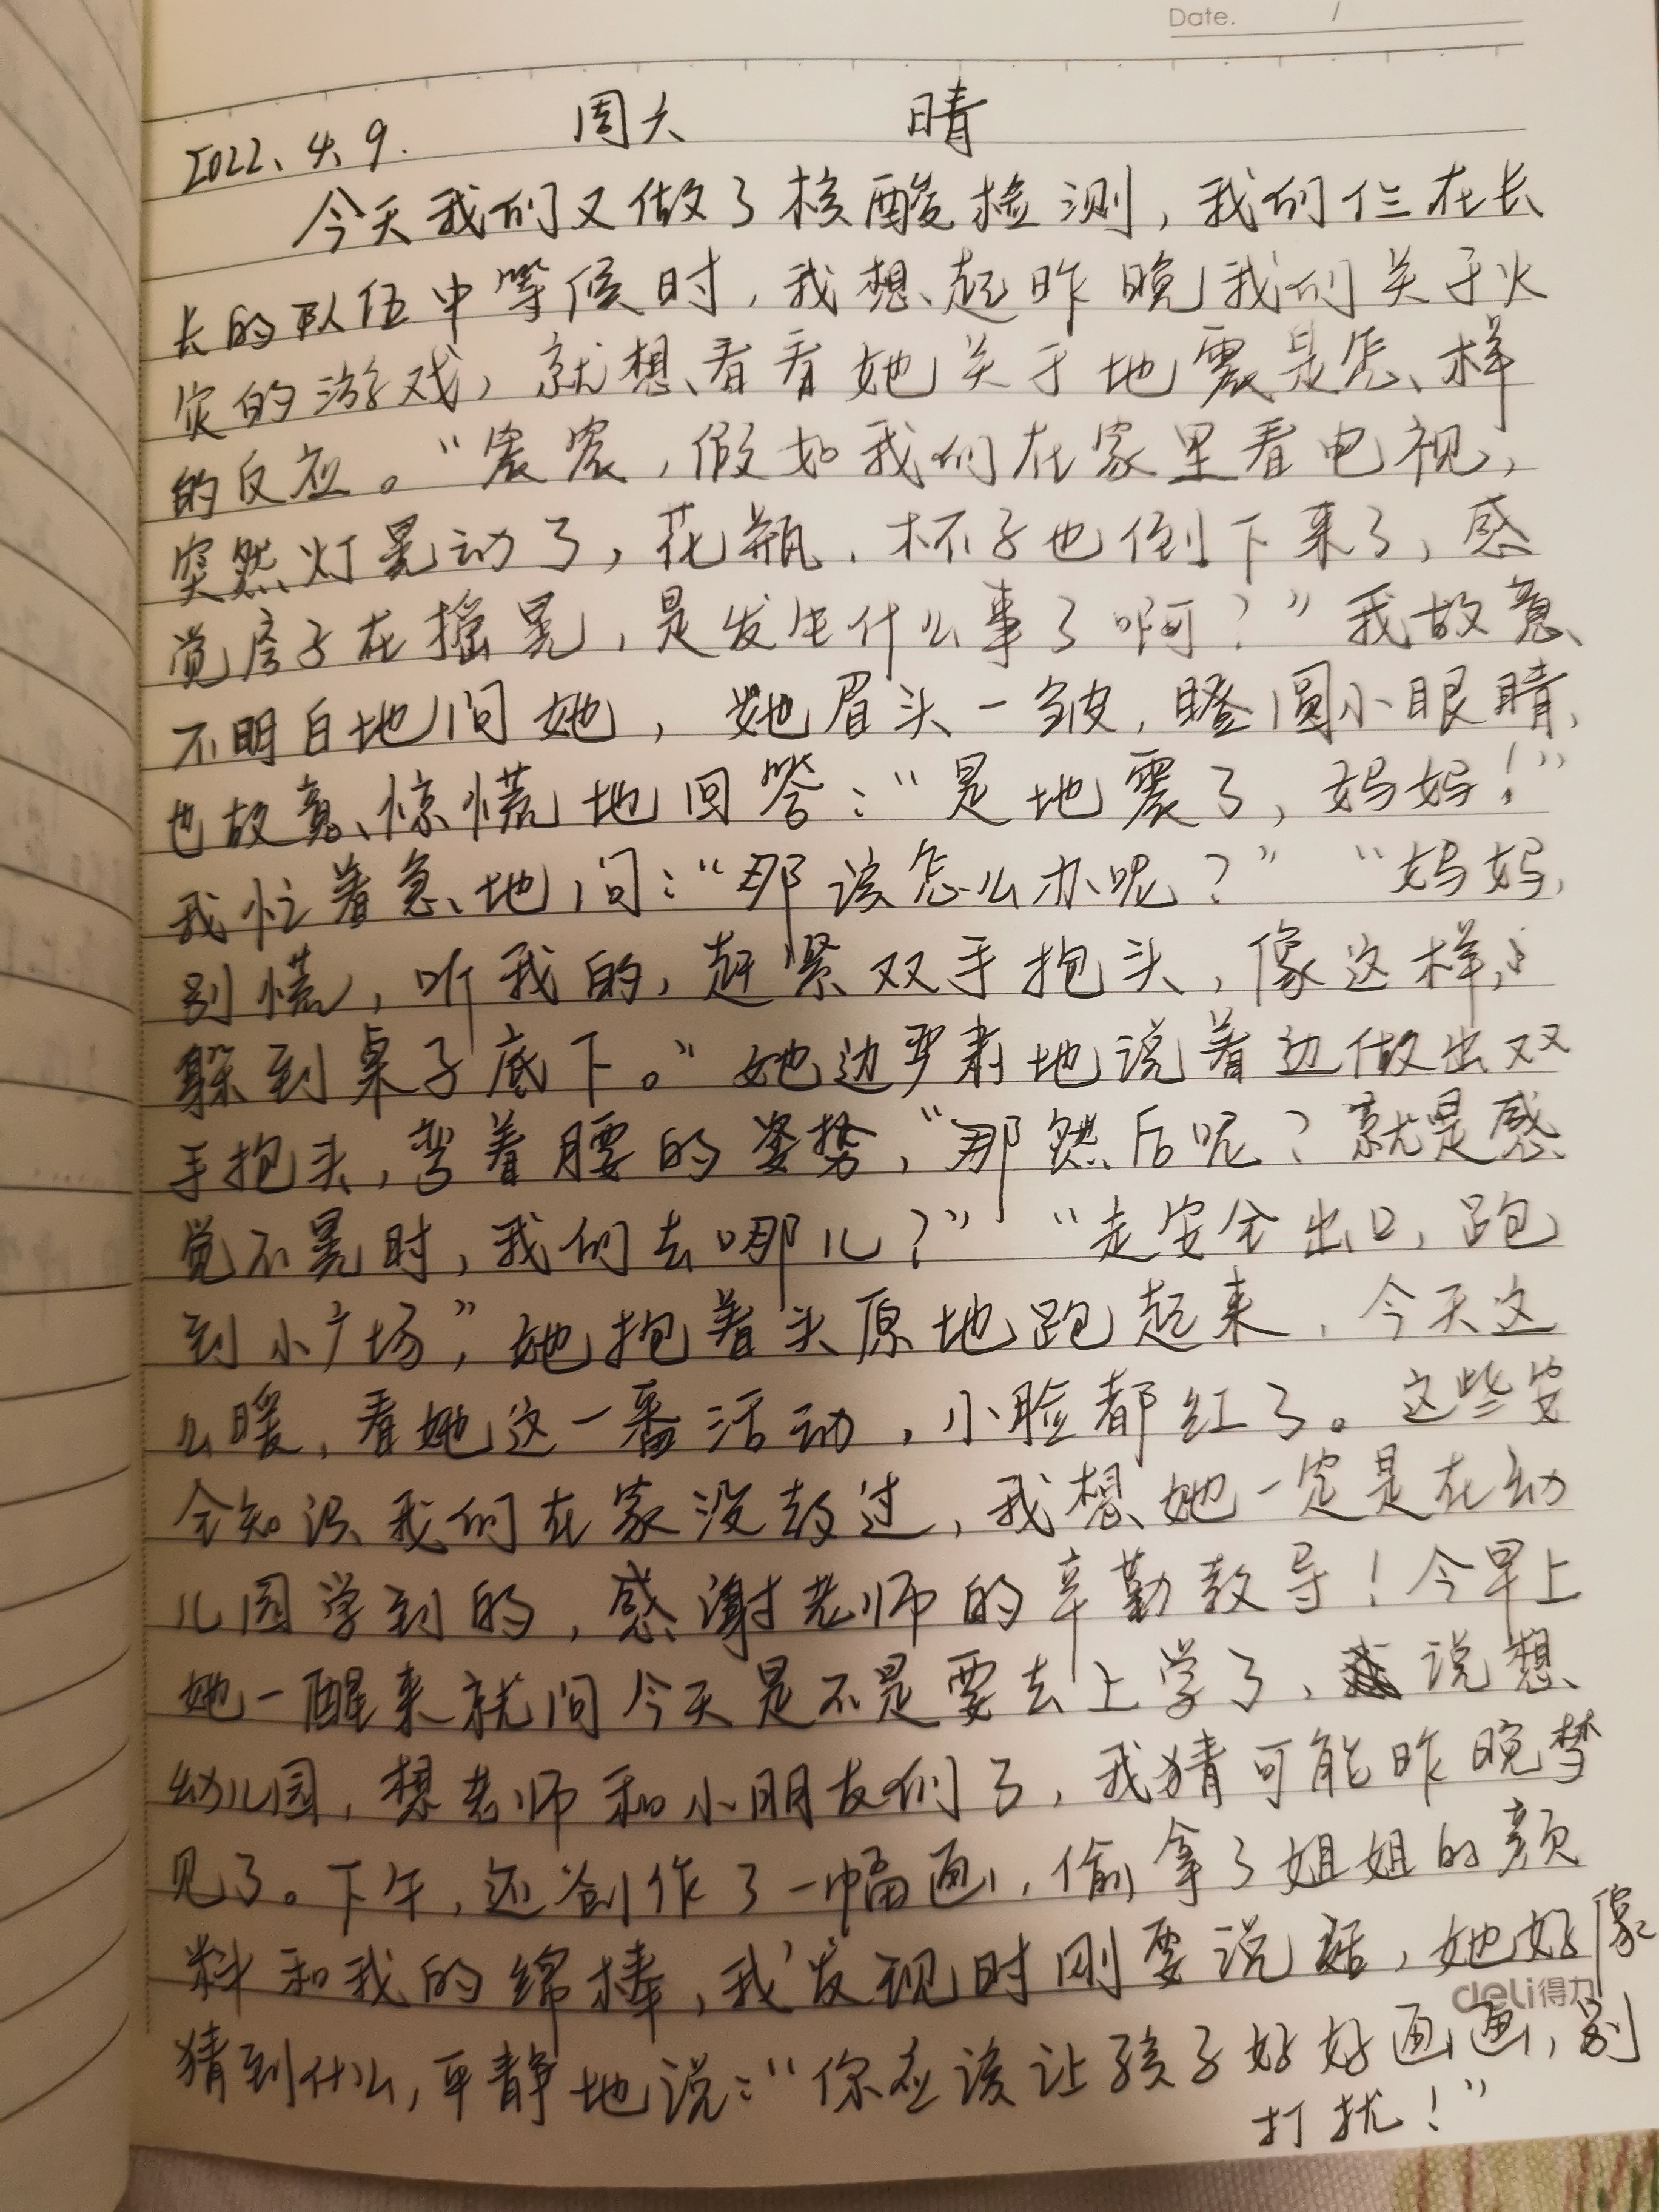 Date. /
2022.4.9. 周六 晴
今天我们又做了核酸检测,我们仨在长
长的队伍中等候时,我想起昨晚我们关于火
灾的游戏,就想看看她关于地震是怎样
的反应。“宸宸,假如我们在家里看电视,
突然灯晃动了,花瓶、杯子也倒下来了,感
觉房子在摇晃,是发生什么事了啊?”我故意
不明白地问她,她眉头一皱,瞪圆小眼睛,
也故意惊慌地回答:“是地震了,妈妈!”
我忙着急地问:“那该怎么办呢?”“妈妈,
别慌,听我的,赶紧双手抱头,像这样,
躲到桌子底下。”她边严肃地说着边做出双
手抱头,弯着腰的姿势,“那然后呢?就是感
觉不晃时,我们去哪儿?”“走安全出口,跑
到小广场”,她抱着头原地跑起来,今天这
么暖,看她这一番活动,小脸都红了。这些安
全知识我们在家没教过,我想她一定是在幼
儿园学到的,感谢老师的辛勤教导!今早上
她一醒来就问今天是不是要去上学了,说想
幼儿园,想老师和小朋友们了,我猜可能昨晚梦
见了。下午,还创作了一幅画,偷拿了姐姐的颜
料和我的绵棒,我发现时刚要说话,她好像
deli得力
猜到什么,平静地说:“你应该让孩子好好画画,别
打扰!”